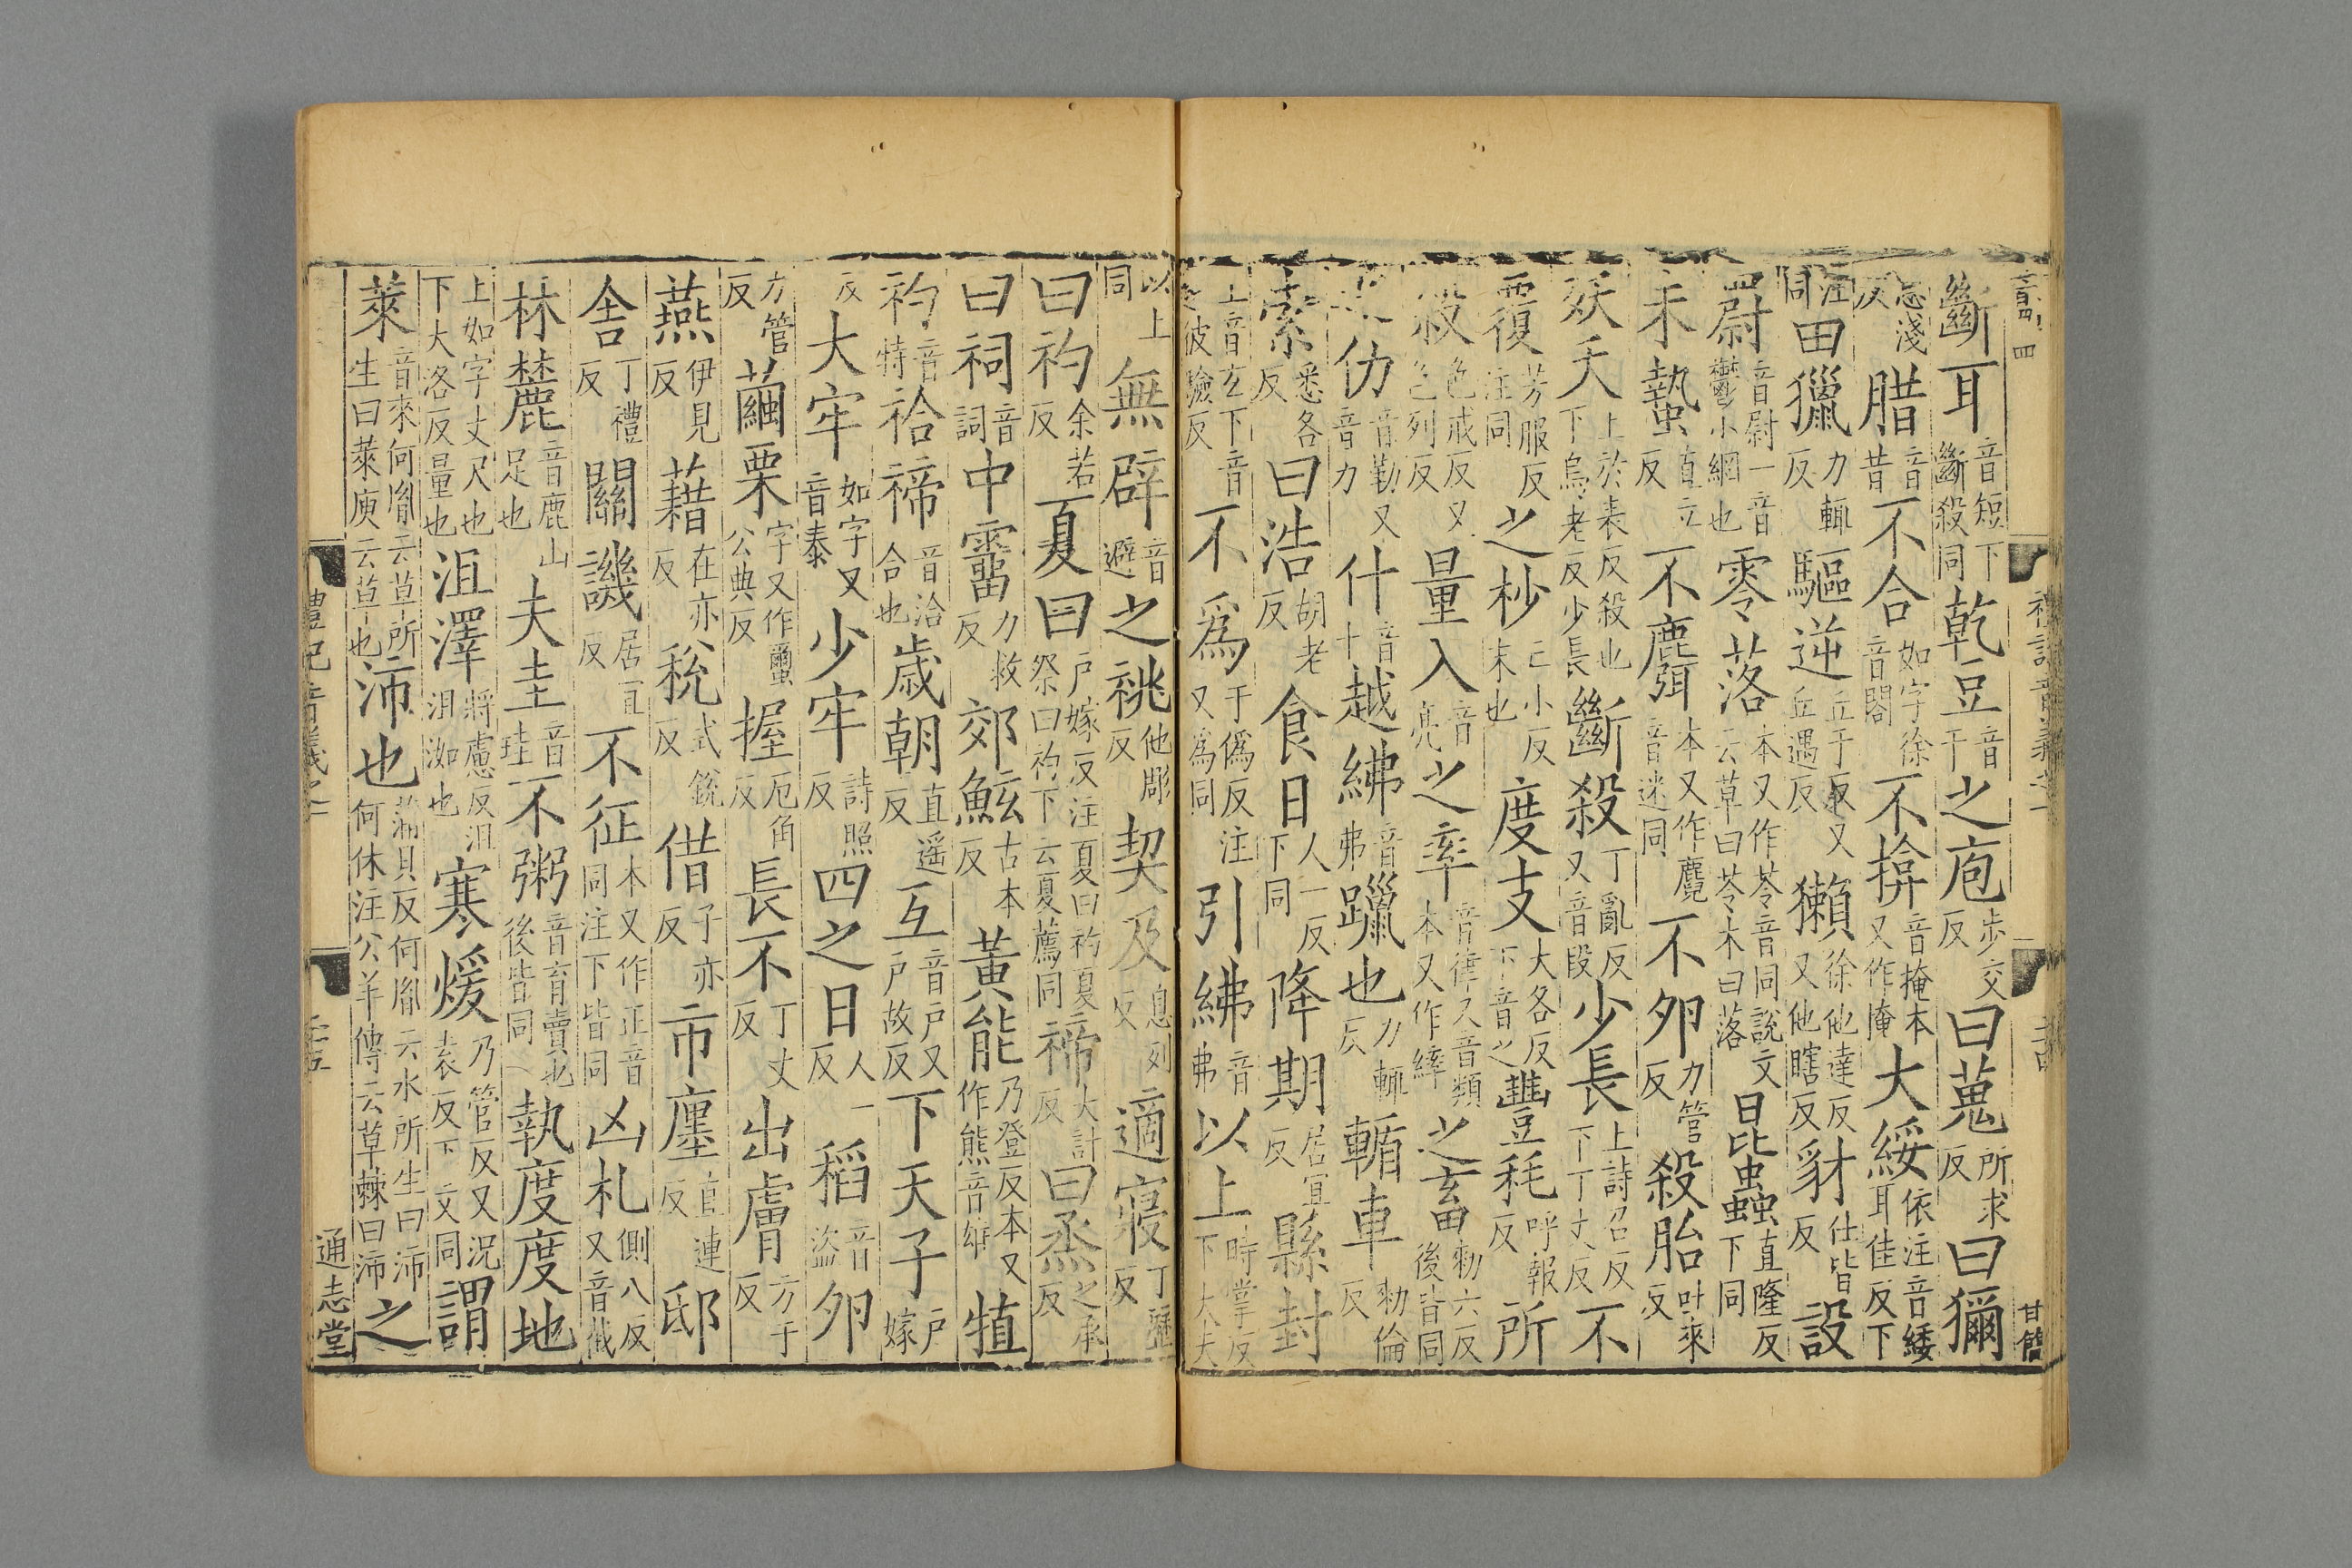 斷耳音短下斷殺同乾豆音干之庖步交反曰蒐所求反曰獮
息淺反腊音昔不合如字徐音閤不揜音掩本又作掩大綏依注音緌耳佳反下
注同田獵力輒反驅逆丘于反又丘遇反獺徐他達反又他瞎反豺仕皆反設
罻音尉一音鬱小網也零落本又作苓音同說文云草曰苓木曰落昆蟲直隆反下同
未蟄直立反不麛本又作麑音迷同不夘力管反殺胎吐來反
殀夭上於表反殺也下烏老反少長斷殺丁亂反又音段少長上詩召反下丁丈反不
覆芳服反注同之杪亡小反末也度支大各反下音之豐耗呼報反所
殺色戒反又色列反量入音亮之率音律又音類本又作繂之畜勑六反後皆同
之仂音勒又音力什音十越紼音弗躐也力輒反輴車勑倫反
索悉各反曰浩胡老反食日人一反下同降期居宜反縣封
上音玄下音彼驗反不爲于僞反注又爲同引紼音弗以上時掌反下大夫
以上同無辟音避之祧他彫反契及息列反適寢丁歷反
曰礿余若反夏曰戶嫁反注夏曰礿夏祭曰礿下云夏薦同禘大計反曰烝之承反
曰祠音詞中霤力救反郊鮌古本反黃能乃登反本又作熊音雄牲
礿音特祫禘音洽合也歲朝直遥反互音戶又戶故反下天子戶嫁
反大牢如字又音泰少牢詩照反四之日人一反稻音盜夘
力管反繭栗字又作蠒公典反握厄角反長不丁丈反出膚方于反
燕伊見反藉在亦反稅式銳反借子亦反市廛直連反邸
丁禮反舍關譏居宜反不征本又作正音同注下皆同凶札側八反又音截
林麓音鹿山足也夫圭音珪不粥音育賣也後皆同執度度地
上如字丈尺也下大洛反量也沮澤將慮反沮洳也寒煖乃管反又況袁反下文同謂
萊音來何胤云草所生曰萊庾云草也沛也蒲貝反何胤云水所生曰沛何休注公羊傳云草棘曰沛之
通志堂